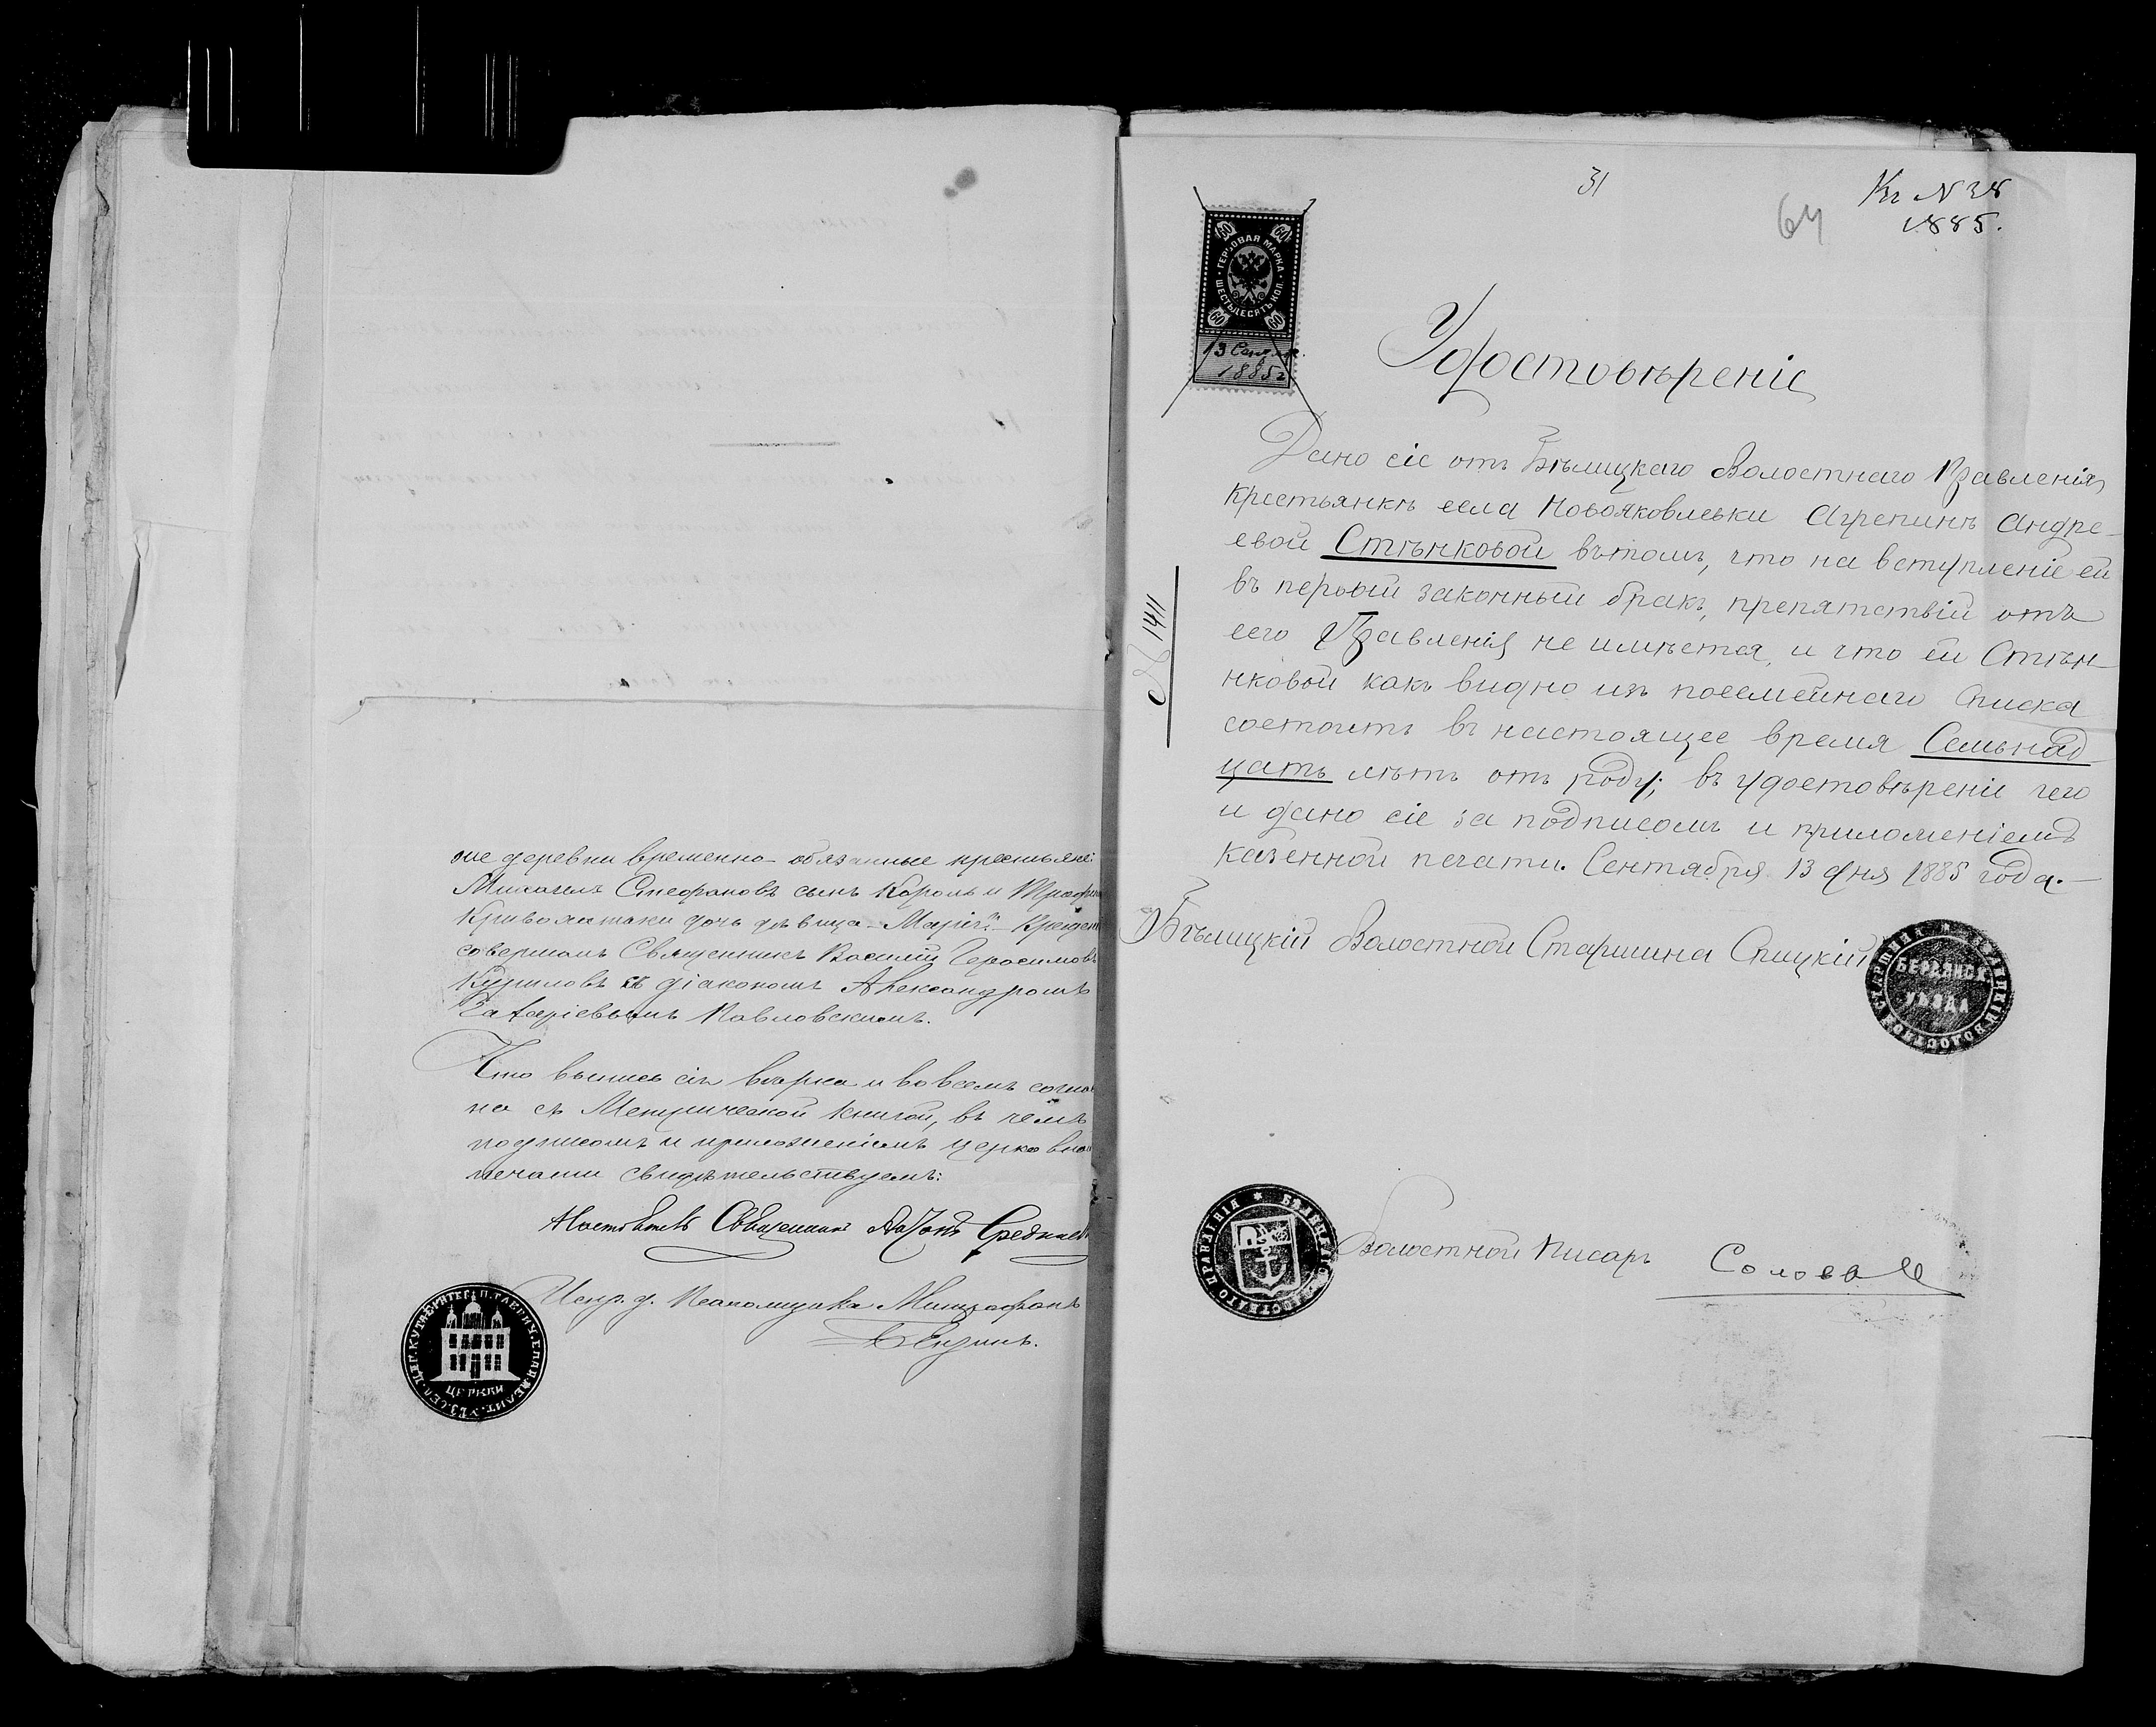 ше деревни временно-обязанные крестьяне:
Михаилъ Стефановъ сынъ Король и
дочь дѣвица Марія. Крещен
совершалъ Священникъ Василій Герасимовъ
съ діакономъ Александромъ
Захаріевымъ Павловскимъ.
Что выпись сія вѣрна и во всемъ соглас
на съ Метрической книгой, въ чемъ
подписомъ и приложеніемъ церковной
печати свидѣтельствуемъ:
Священникъ
Испр. д. Псаломщика Митрофанъ
ЦЕРКВИ
31
64
Къ N 38
1885.
60 60
ГЕРБОВАЯ МАРКА
ШЕСТЬДЕСЯТЪ КОП.
60 60
13 Сент.
1885 г
Удостовѣреніе
Дано сіе отъ Бѣлицкаго Волостнаго Правленія
крестьянкѣ села Новояковлевки Агрепинѣ Андре-
евой Стѣнковой вътомъ, что на вступленіе ей
въ первый законный бракъ, препятствій отъ
сего Правленія не имѣется, и что ей Стѣн-
нковой какъ видно изъ посемейнаго Списка
состоитъ въ настоящее время Семьнад
цать лѣтъ отъ роду; въ удостовѣреніе чего
и дано сіе за подписомъ и приложеніемъ
казенной печати. Сентября 13 дня 1885 года.-
№ 1411
Бѣлицкій Волостной Старшина Спицкій
БЕРДЯНСК.
УѢЗДА
Волостной Писарь Соловей